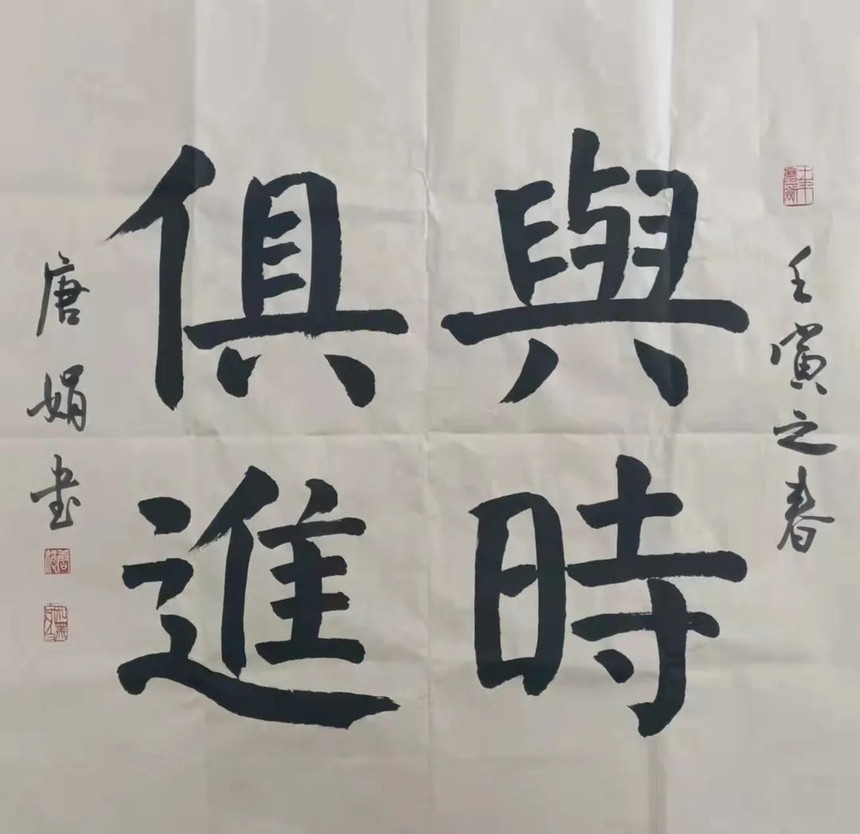 壬寅之春
與時
俱進
唐娟书